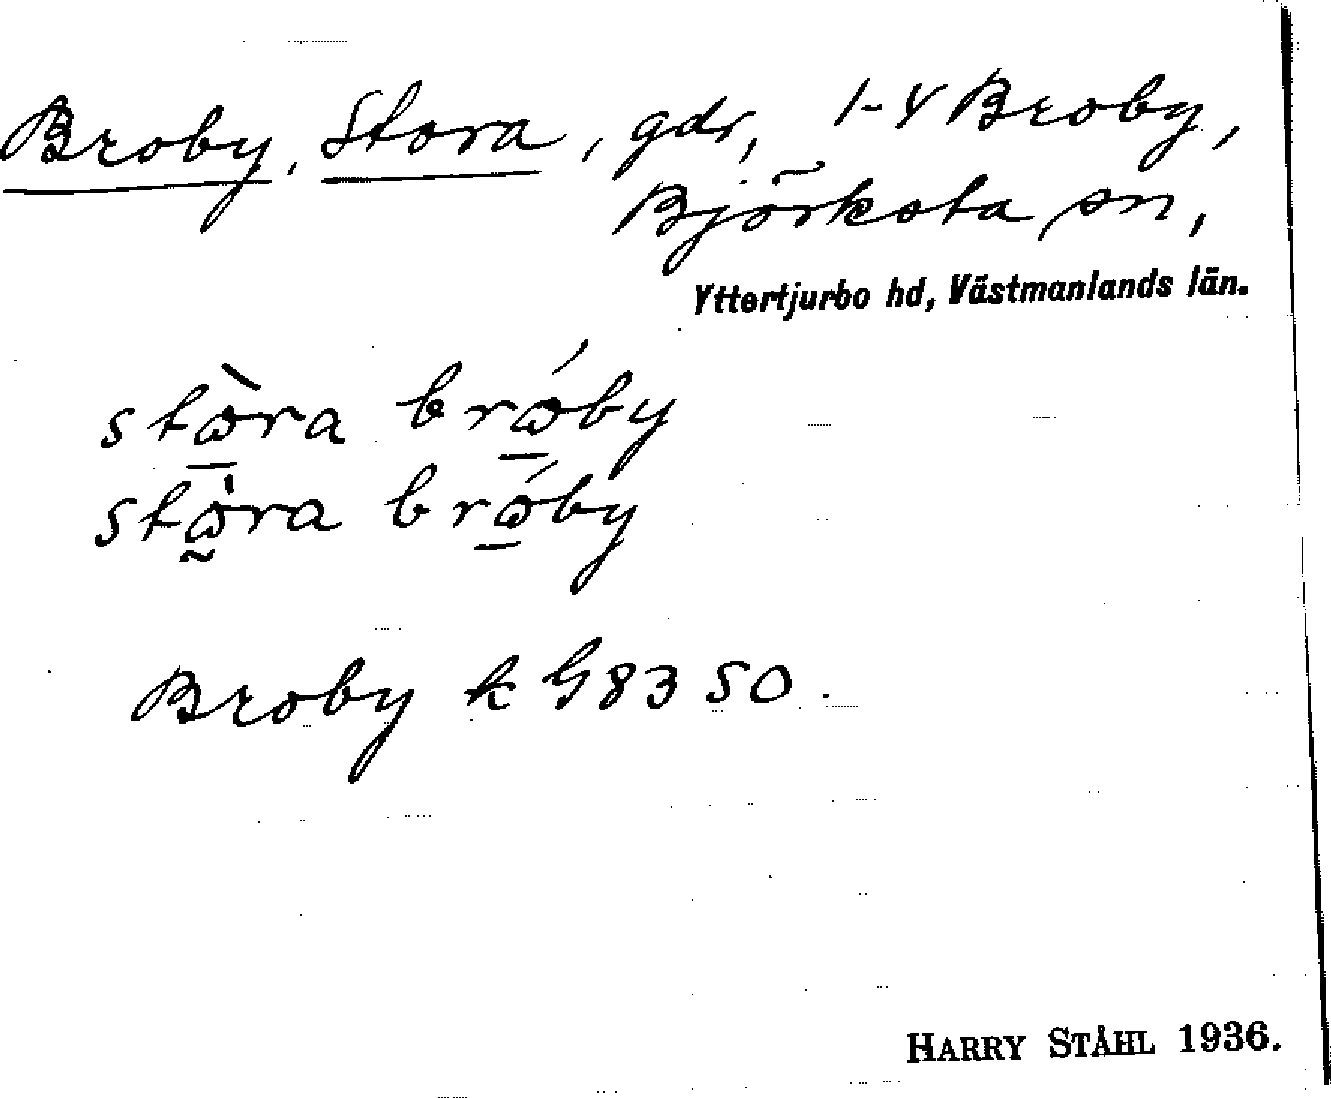 Broby, Stora, gdr, 1-4 Broby,
Björksta sn,
Yttertjurbo hd, Västmanlands län.
stὼ̱ra brώ̱by
stὼ̰ra brώ̱by
Broby k G83 50.
HARRY STÅHL 1936.